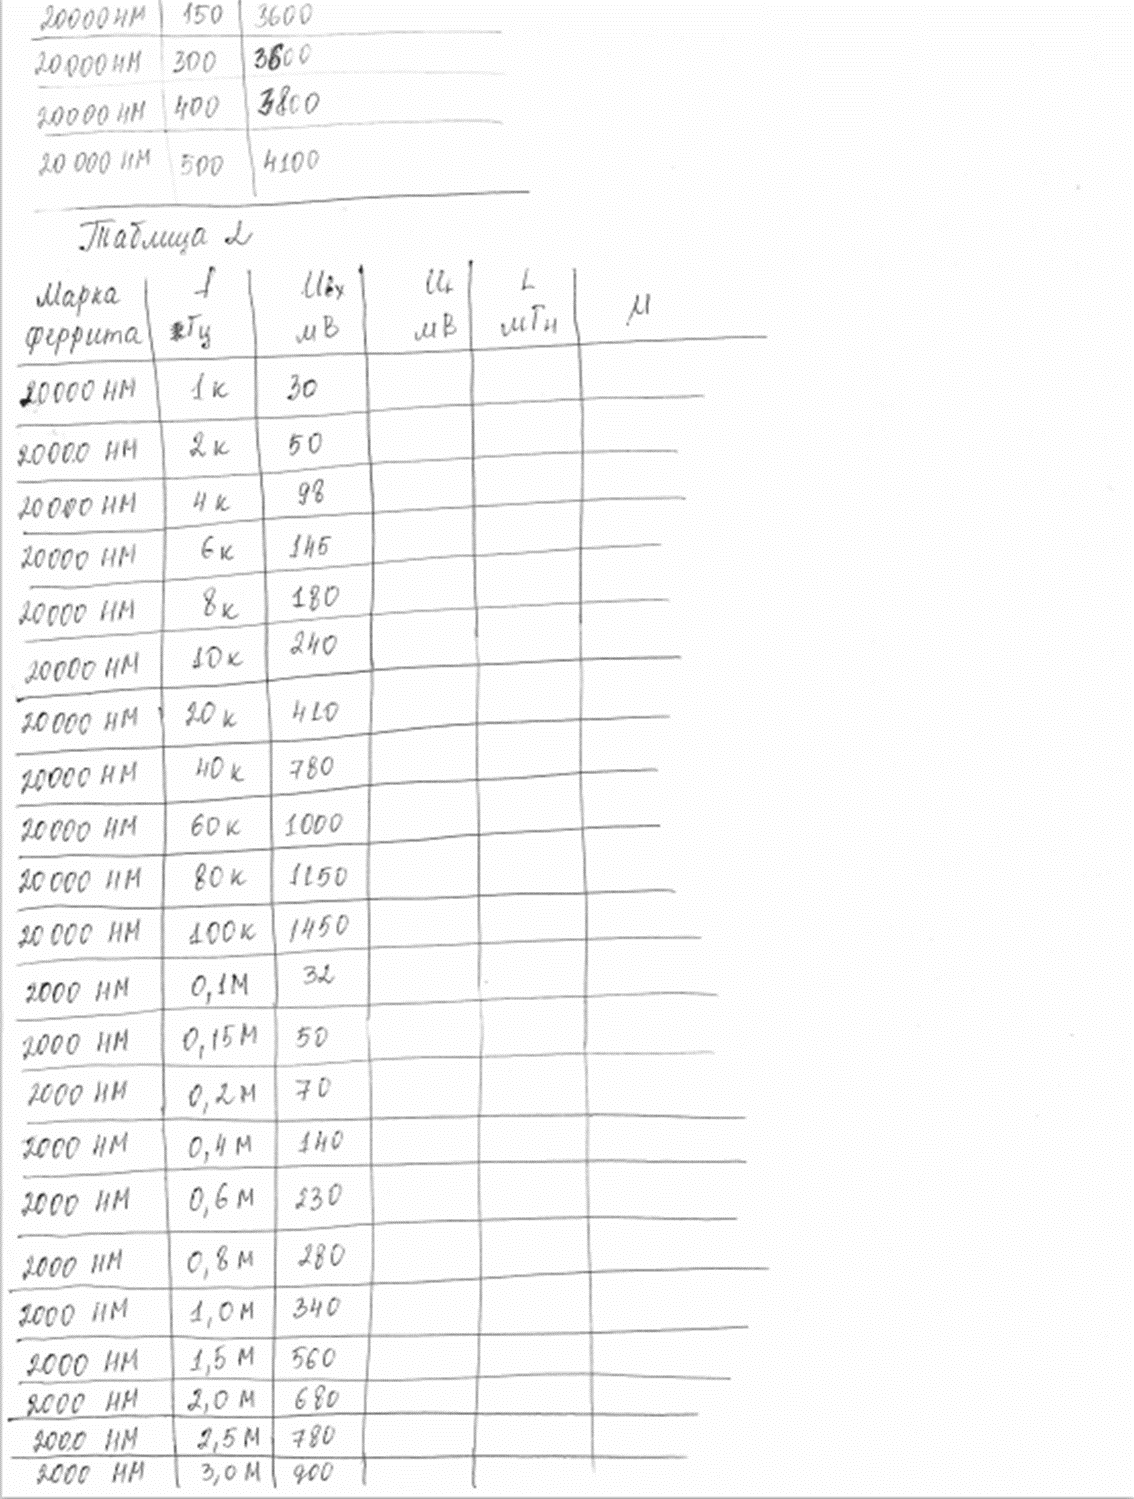 20000 НМ 150 3600
20000 НМ 300 3600
20000 НМ 400 3800
20 000 НМ 500 4100
Таблица 2
Марка f Uвх UL L М
феррита Гц мВ мВ мГн
20000 НМ 1к 30
20000 НМ 2к 50
20000 НМ 4к 98
20000 НМ 6к 145
20000 НМ 8к 180
20000 НМ 10к 240
20000 НМ 20к 410
20000 НМ 40к 780
20000 НМ 60к 1000
20 000 НМ 80к 1150
20 000 НМ 100к 1450
2000 НМ 0,1М 32
2000 НМ 0,15М 50
2000 НМ 0,2М 70
2000 НМ 0,4М 140
2000 НМ 0,6М 230
2000 НМ 0,8М 280
2000 НМ 1,0М 340
2000 НМ 1,5М 560
2000 НМ 2,0М 680
2000 НМ 2,5М 780
2000 НМ 3,0М 900